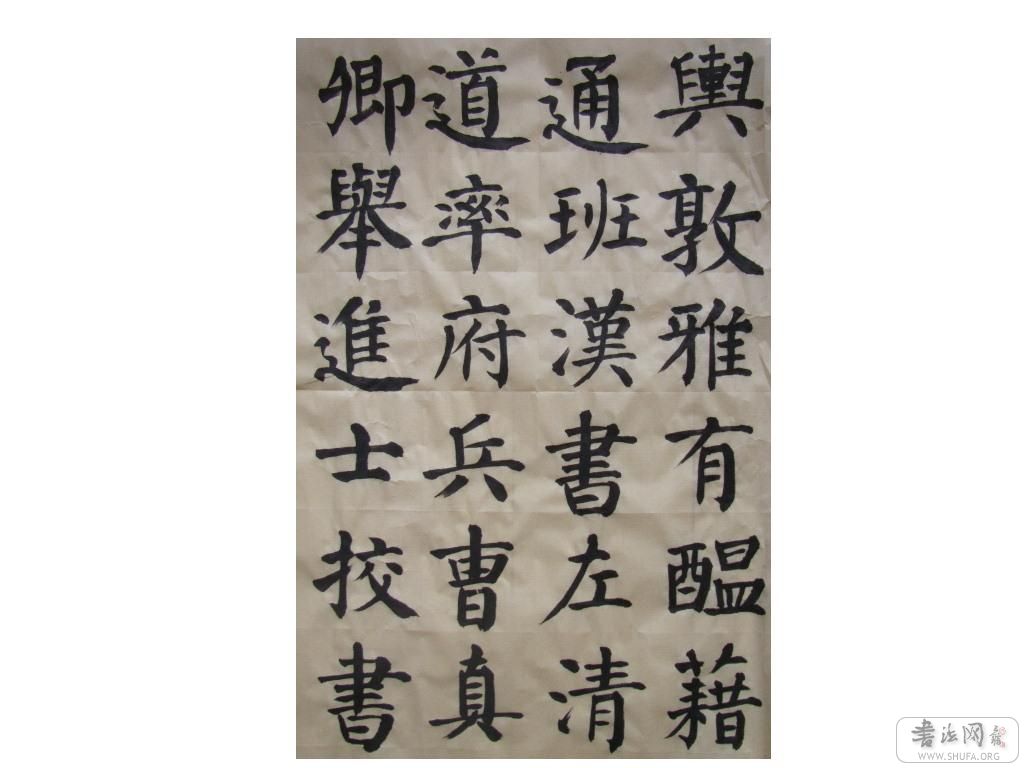 輿敦雅有醖藉
通班漢書左清
道率府兵曹真
卿舉進士挍書
書法网
WWW.SHUFA.ORG